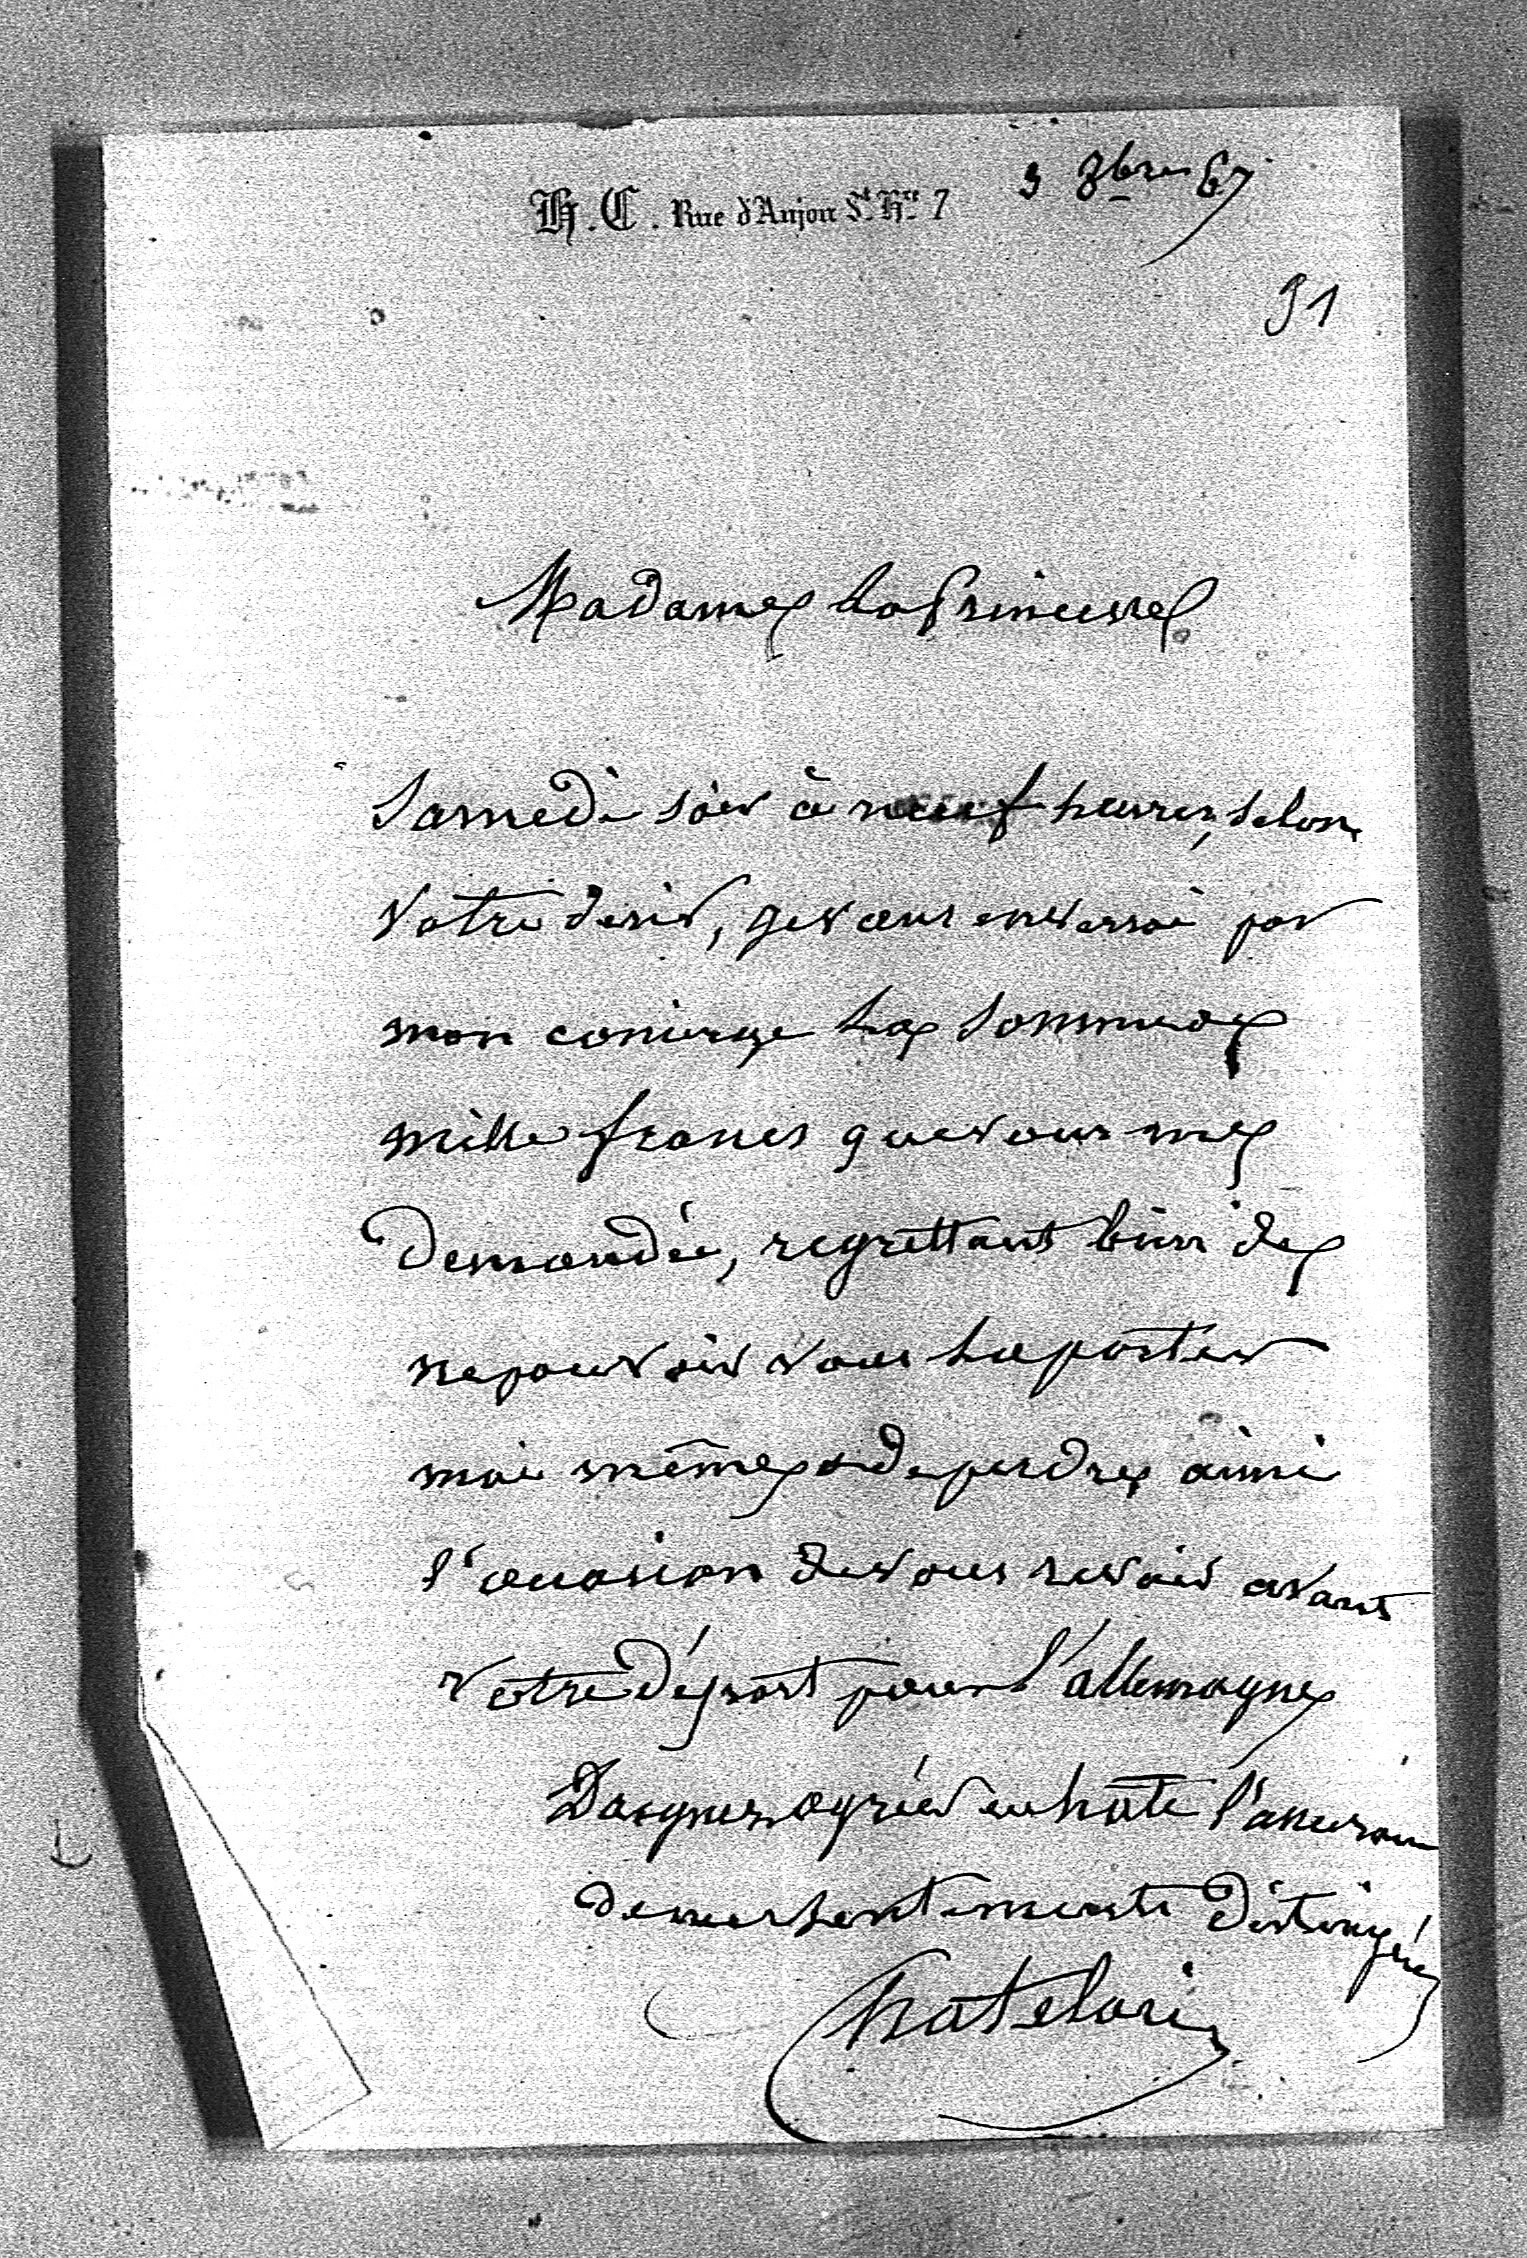 H. C. Rue d'Anjou St. Hré 7
3 8bre 67
91
Madame la Princesse
Samedi soir à neuf heures, selon
votre desir, je vous enverrai par
mon concierge la somme de
mille francs que vous me
demandée, regrettant bien de
ne pouvoir vous la porter
moi même & de perdre ainsi
l'occasion de vous revoir avant
votre départ pour l'allemagne
Daignez agréer en hate l'assurance
de mes sentiments distingués
Chatelain